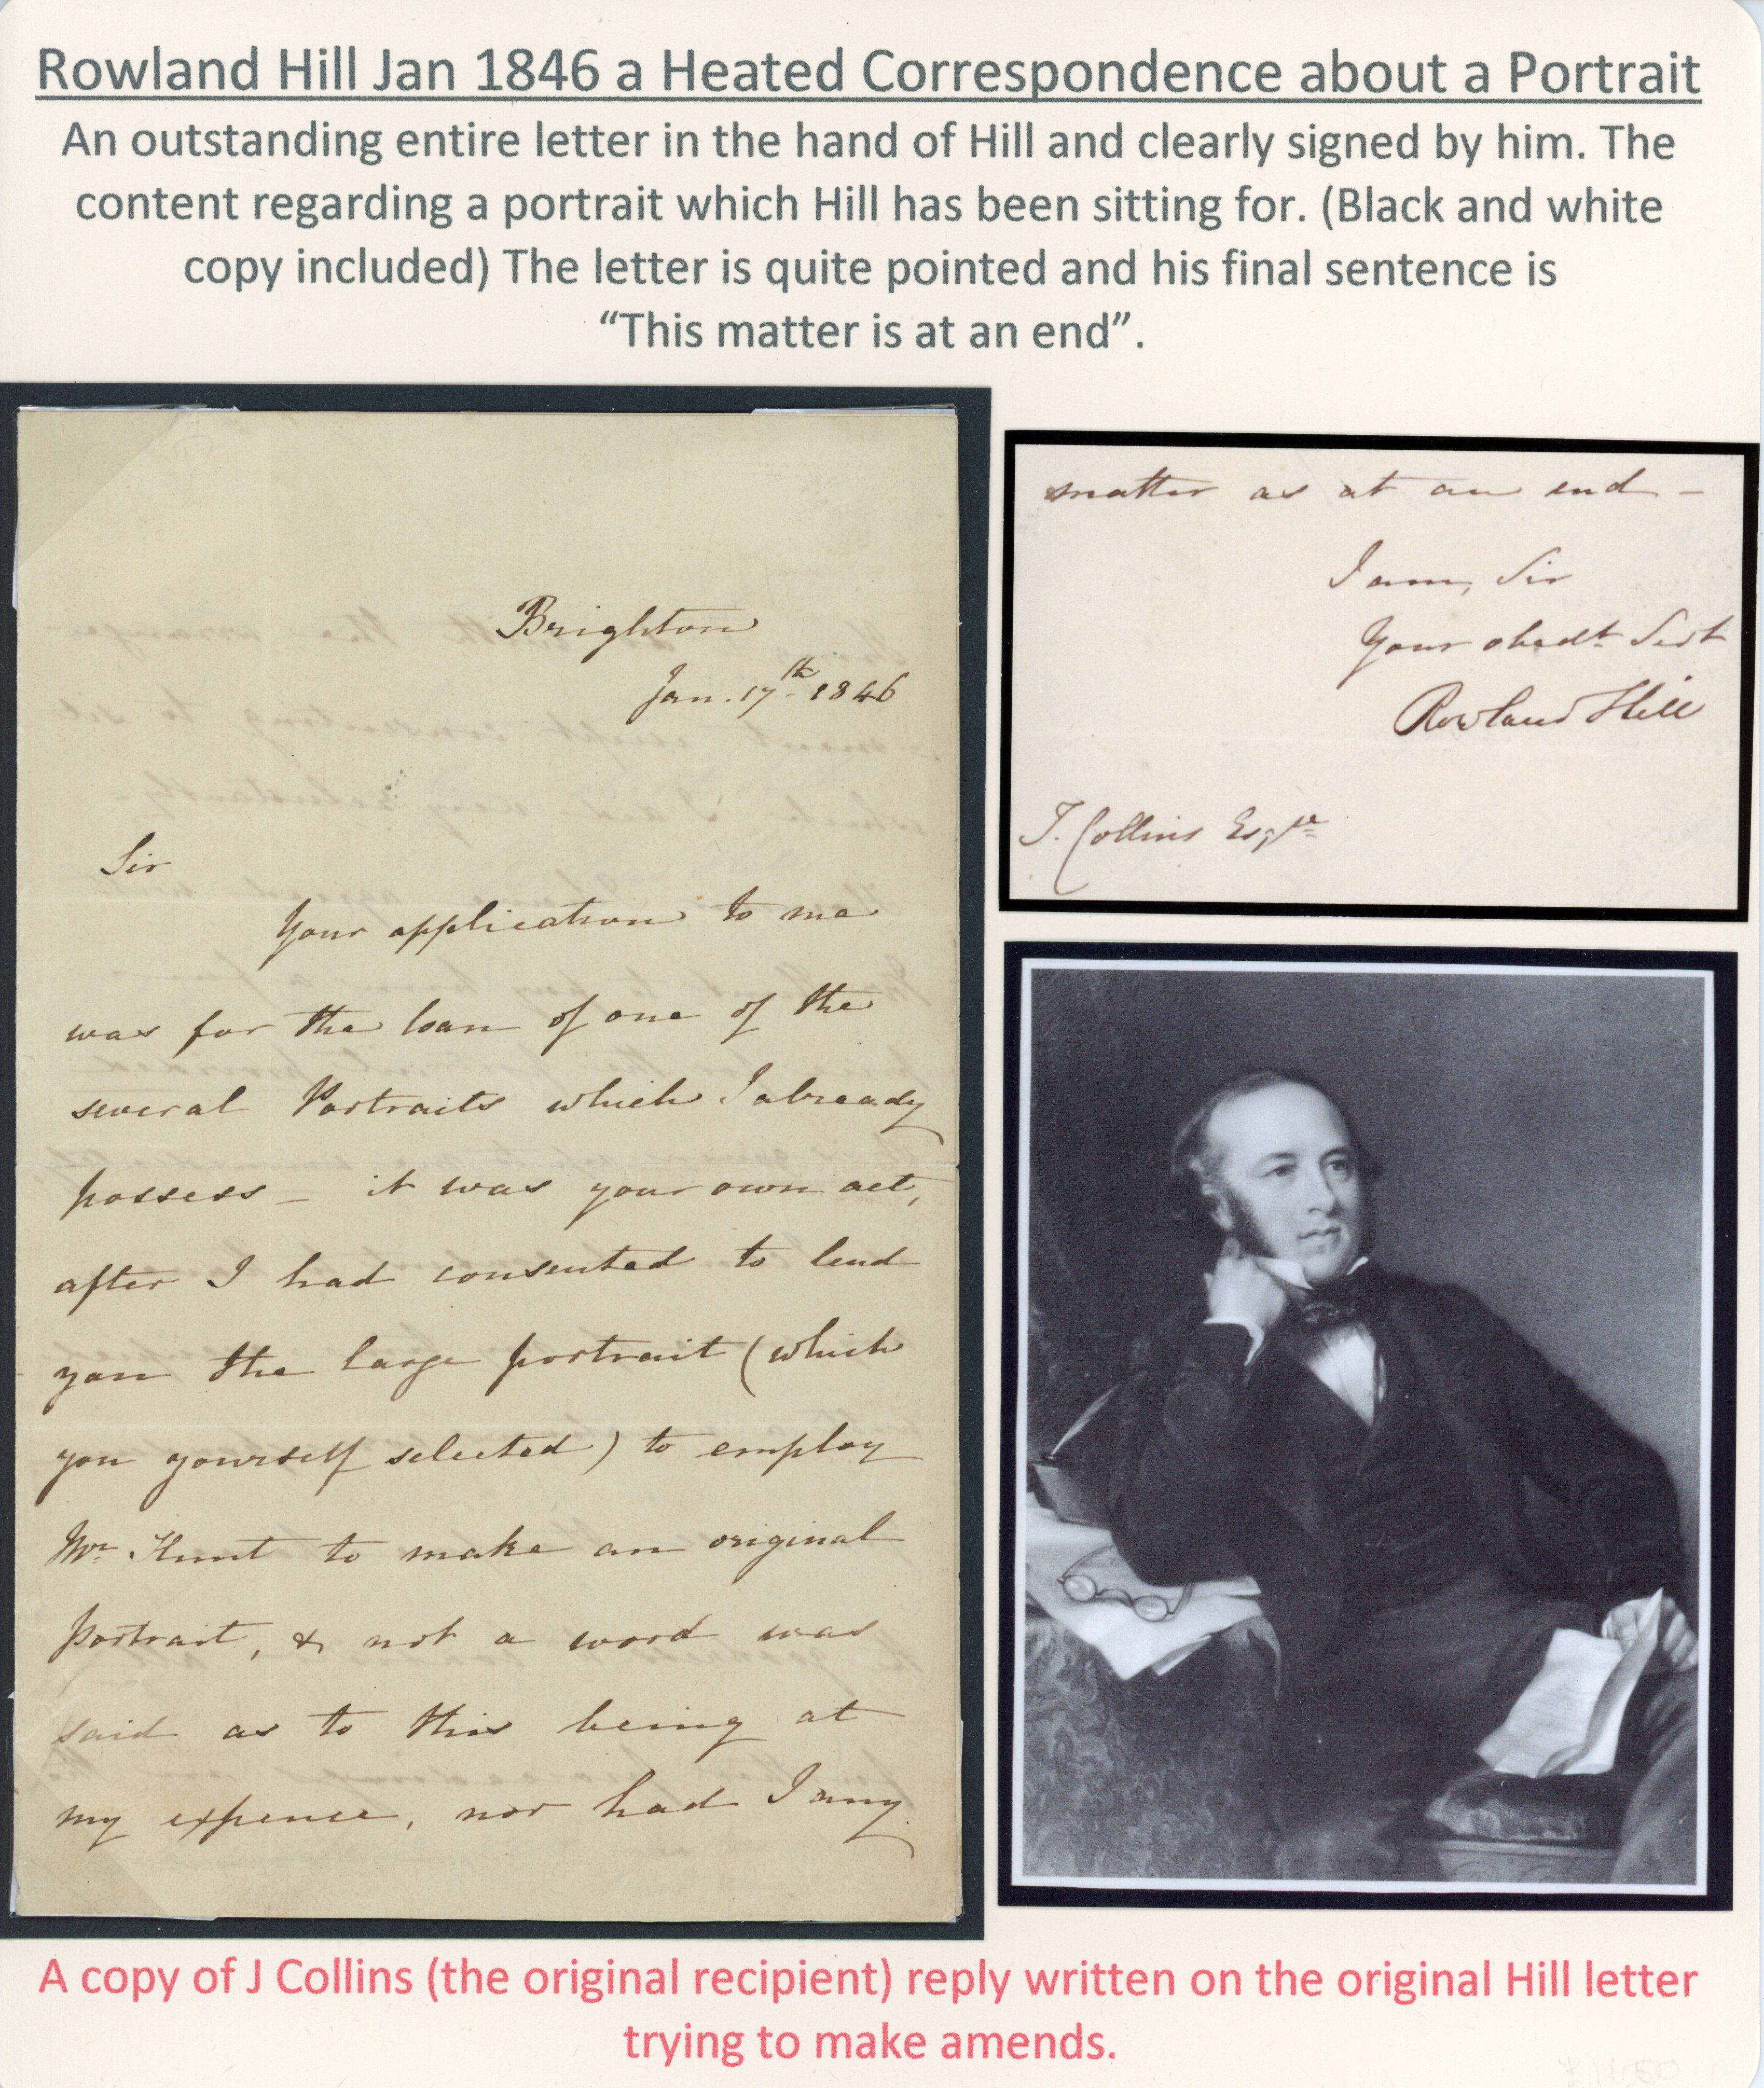 Rowland Hill Jan 1846 a Heated Correspondence about a Portrait
An outstanding entire letter in the hand of Hill and clearly signed by him. The
content regarding a portrait which Hill has been sitting for. (Black and white
copy included) The letter is quite pointed and his final sentence is
“This matter is at an end”.
Brighton
Jan. 17th 1846
Sir
Your application to me
was for the loan of one of the
several Portraits which I already
possess – it was your own act,
after I had consented to lend
you the large portrait (which
you yourself selected) to employ
Mr. Hunt to make an original
portrait, & not a word was
said as to this being at
my expense, nor had I any
matter as at an end –
I am, Sir
Your obedt. Servt
Rowland Hill
J. Collins Esqre
A copy of J Collins (the original recipient) reply written on the original Hill letter
trying to make amends.